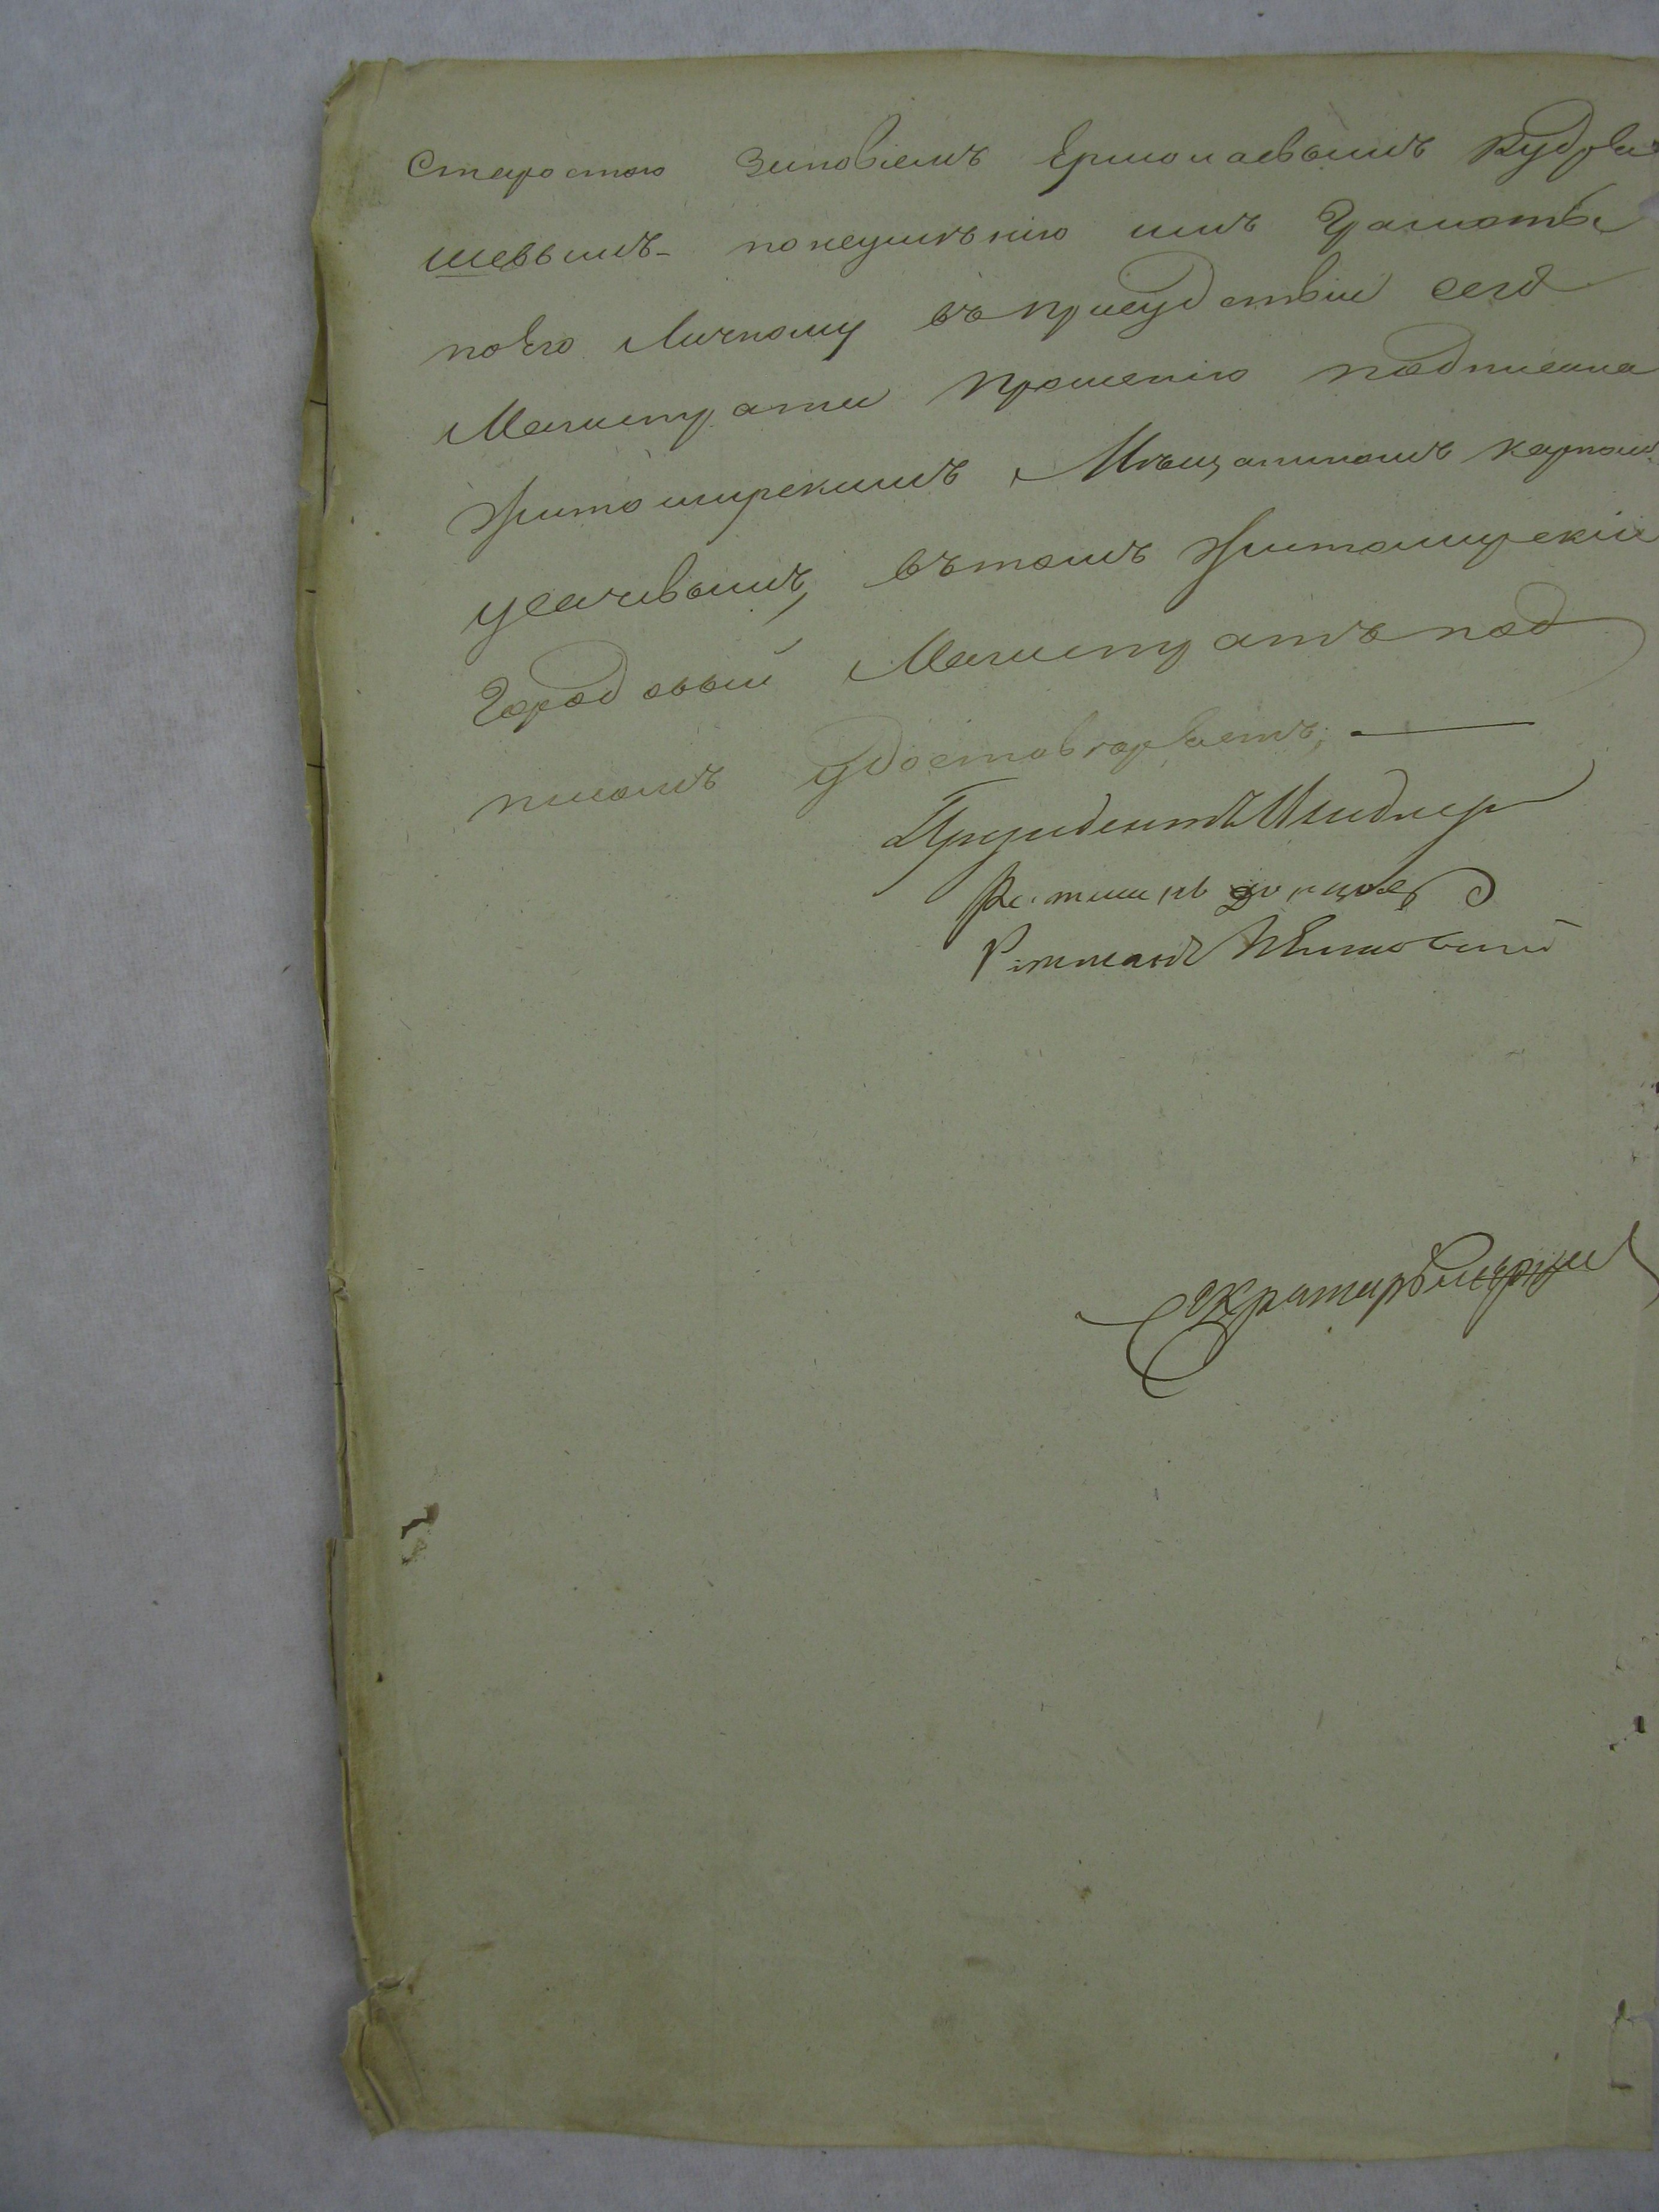 Старостою Зиновіемъ Ермолаевымъ Кудря
шевымъ- понеумѣнію имъ Грамоты
поЕго Личному въ присудствіи сего
Магистрата Прошенію подписана
Житомирскимъ Мѣщаниномъ Карпомъ
усачевымъ, въ томъ Житомирскій
Городовый Магистратъ под
писомъ удостовѣряетъ. —
Президентъ
Ратманъ
Ратманъ
Секретарь